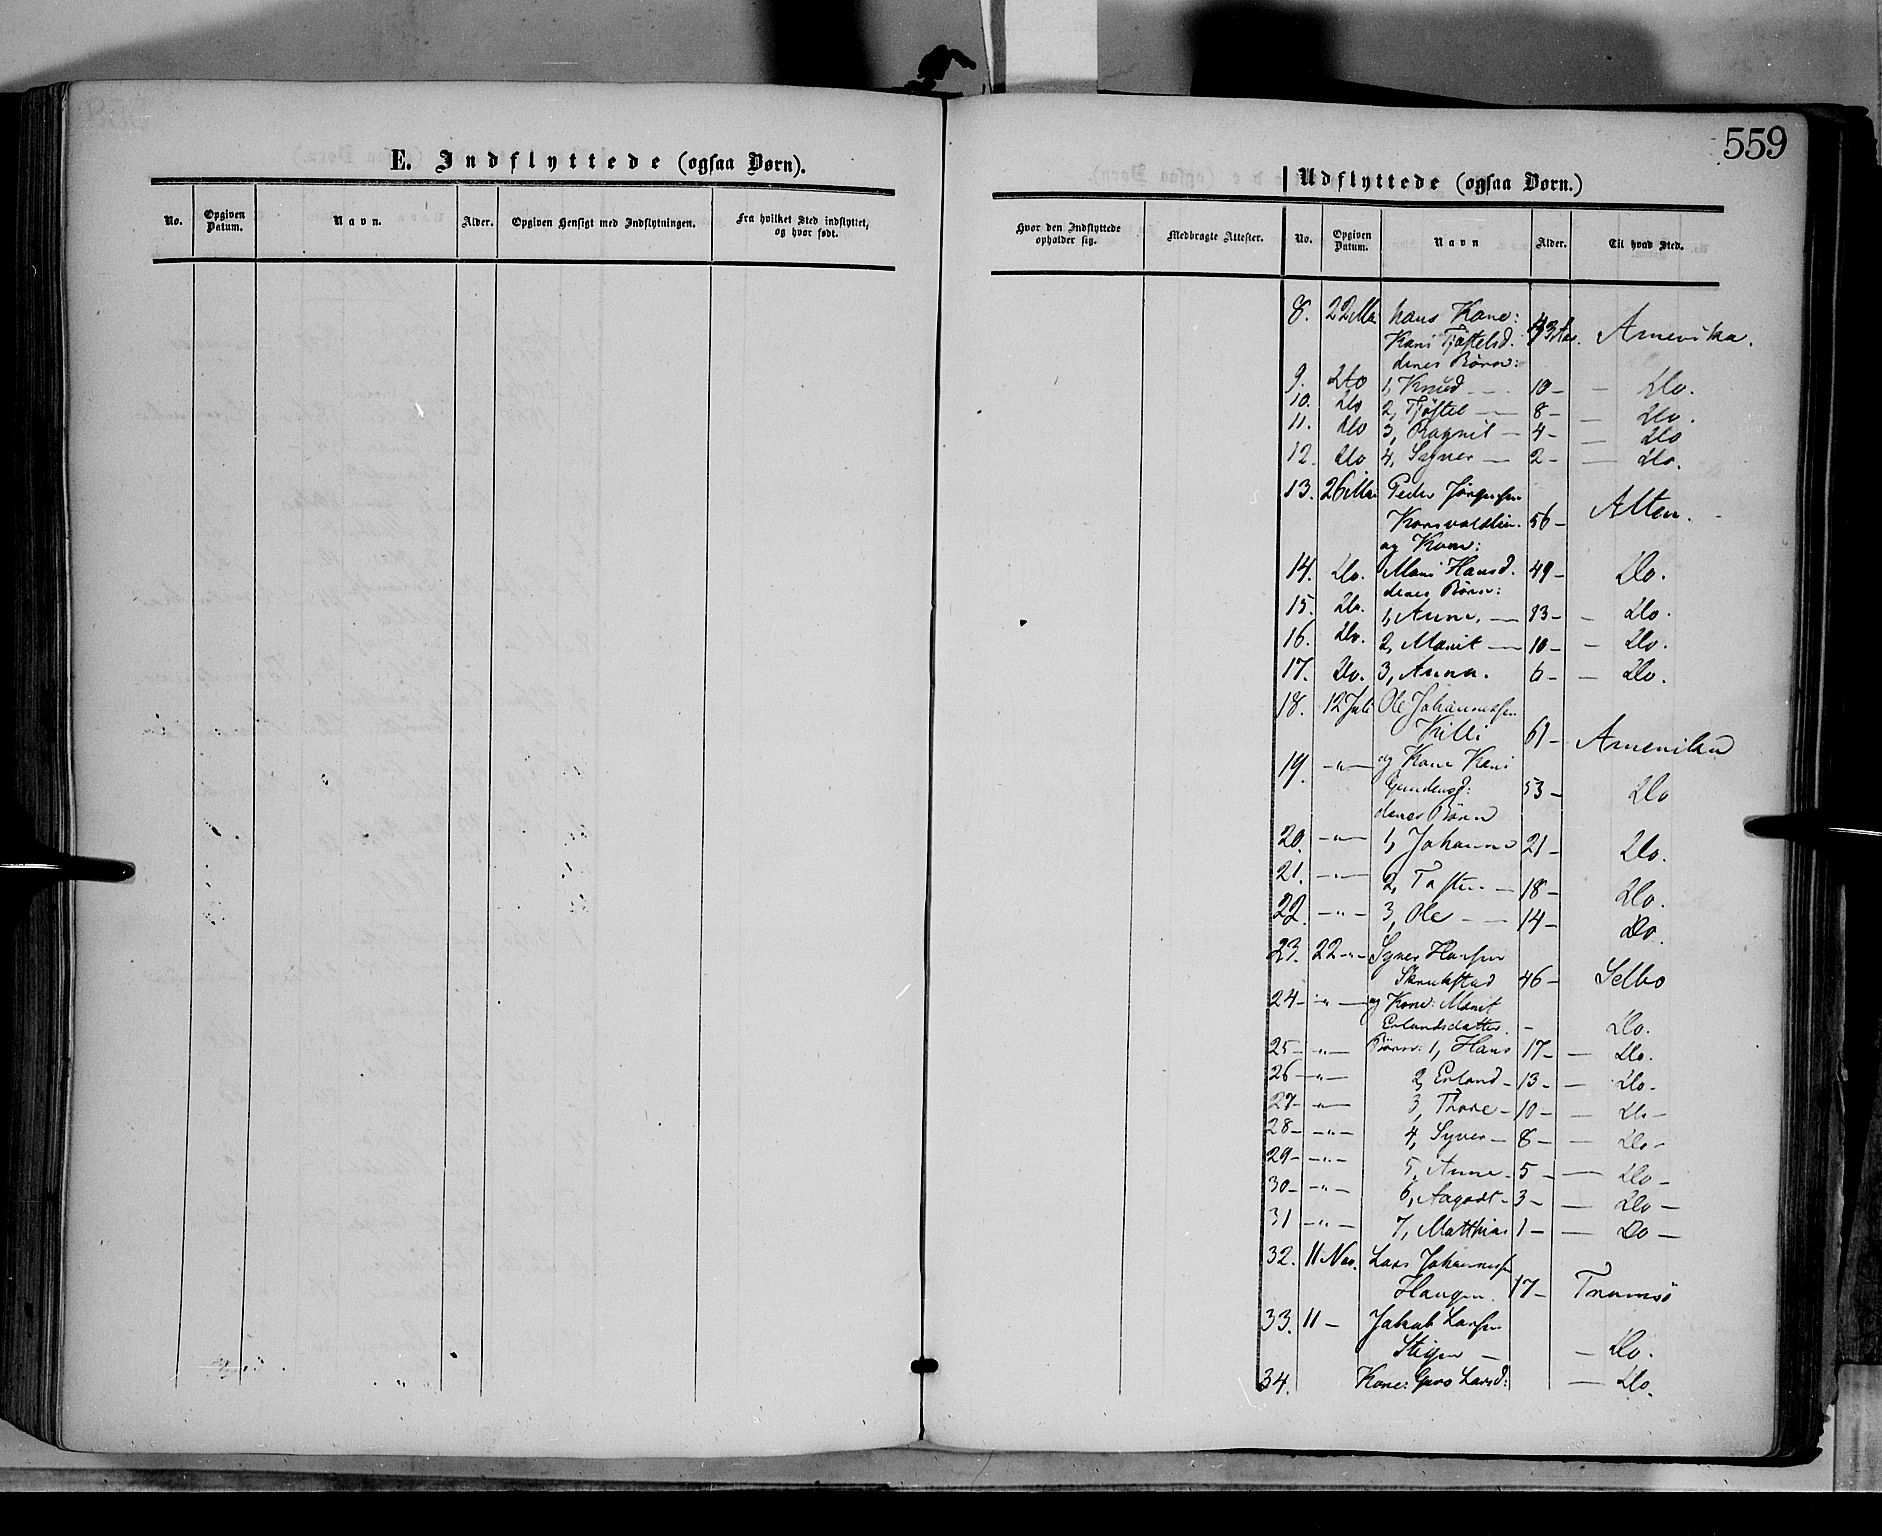 559
E. Indflyttede (ogsaa Børn).
No. Opgiven Datum. Navn. Alder. Opgiven Hensigt med Indflytningen. Fra hvilket Sted indflyttet, og hvor født.
Udflyttede (ogsaa Børn.)
Hvor den Indflyttede opholder sig. Medbragte Attester. No. Opgiven Datum. Navn Alder. Til hvad Sted.
8. 22 Mai hans Kone:
Kari Tjøstelsd. Amerika.
deres Børn:
9. Do 1, Knud — 10 — — Do.
10. Do 2, Tjøstel — 8 — — Do.
11. Do 3, Ragnil — 4 — — Do
12. Do 4, Syver — 2 — — Do.
13. 26 Mai Peder Jørgensen
56 — Alten.
og Kone:
14. Do. Mari Hansd. 49 — Do.
deres Børn:
15. Do. 1, Anne. — 13 — — Do.
16. Do. 2, Marit — 10 — — Do.
17. Do. 3, Anna. 6 — — Do.
18. 12 Juli Ole Johannessen
61 — Amerika
19. — " — og Kone Kari
Gundersd: 53 — Do
deres Børn
20. — " — 1, Johanne 21 — Do.
21. — " — 2, Tosten — 18 — Do.
22. — " — 3, Ole — 14 — Do.
23. 22 — " — Syver Hansen
46 — Selbo
24 — " — og Kone: Marit
Erlandsdatter. — Do.
25 — " — Børn: 1, Hans 17 — — Do.
26 — " — 2, Erland — 13 — — Do —
27 — " — 3, Thore — 10 — — Do —
28 — — " — 4, Syver — 8 — — Do —
29 — — " — 5, Anne — 5 — — Do —
30 — — " — 6, Aagodt — 3 — — Do —
31 — " — 7, Matthias 1 — — Do —
32. 11 Nov. Lars Johannessen
Haugen. 17 — Tromsö
33. 11 — Jakob Larsen
Stigen — — Do.
34. Kone: Guro Larsd: — Do.